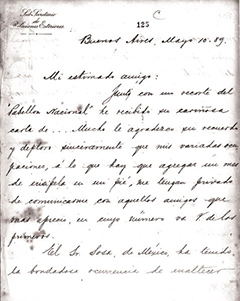 Sub-Secretario
de
Relaciones Exteriores
125
C
Buenos Aires, Mayo 10. 89.
Mi estimado amigo:
Junto con un recorte del
"Pabellon Nacional" he recibido su cariñosa
carta de.... Mucho le agradezco su recuerdo
y deploro sinceramente que mis variadas ocu-
paciones, á lo que hay que agregar un mes
de en un pié, me tengan privado
de comunicarme con aquellos amigos que
mas aprecio, en cuyo número va V. de los
primeros.
El Sr. Sosa, de México, ha tenido
la bondadosa ocurrencia de enaltecer